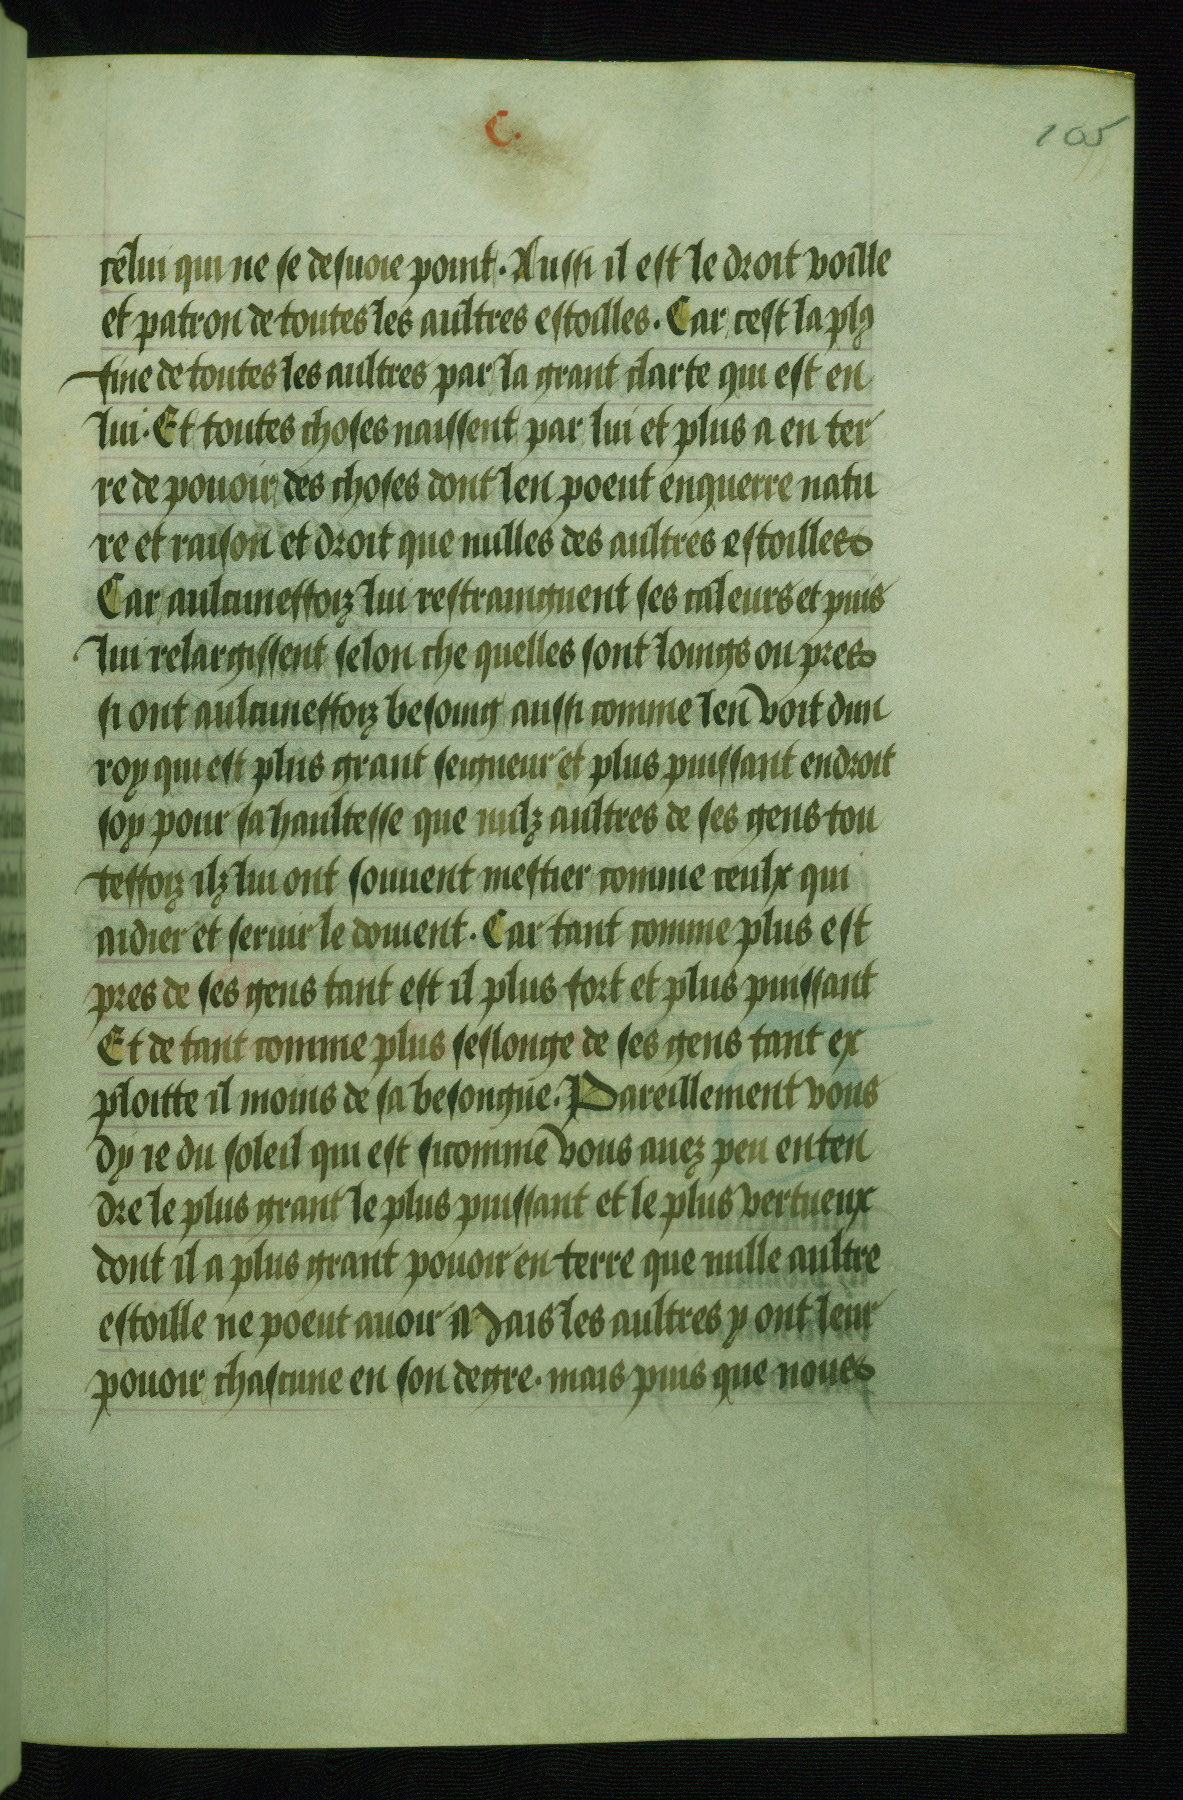 C.
105
celui qui ne se desuoie point. Aussi il est le droit voille
et patron de toutes les aultres estoilles. Car cest la plꝯ
fine de toutes les aultres par la grant clarte qui est en
lui. Et toutes choses naissent par lui et plus a en ter
re de pouoir des choses dont len poeut enquerre natu
re et raison et droit que nulles des aultres estoilles
Car aulcuneffoiz lui restraingnent ses caleurs et puis
lui relargissent selon che quelles sont loings ou pres
si ont aulcuneffoiz besoing aussi comme len voit dun
roy qui est plus grant seigneur et plus puissant endroit
soy pour sa haultesse que nulz aultres de ses gens tou
teffoiz ilz lui ont souuent mestier comme ceulx qui
aidier et seruir le doiuent. Car tant comme plus est
pres de ses gens tant est il plus fort et plus puissant
Et de tant comme plus seslonge de ses gens tant ex
ploitte il moins de sa besongne. Pareillement vous
dy ie du soleil qui est sicomme vous auez peu enten
dre le plus grant le plus puissant et le plus vertueux
dont il a plus grant pouoir en terre que nulle aultre
estoille ne poeut auoir Mais les aultres y ont leur
pouoir chascune en son degre. mais puis que nous